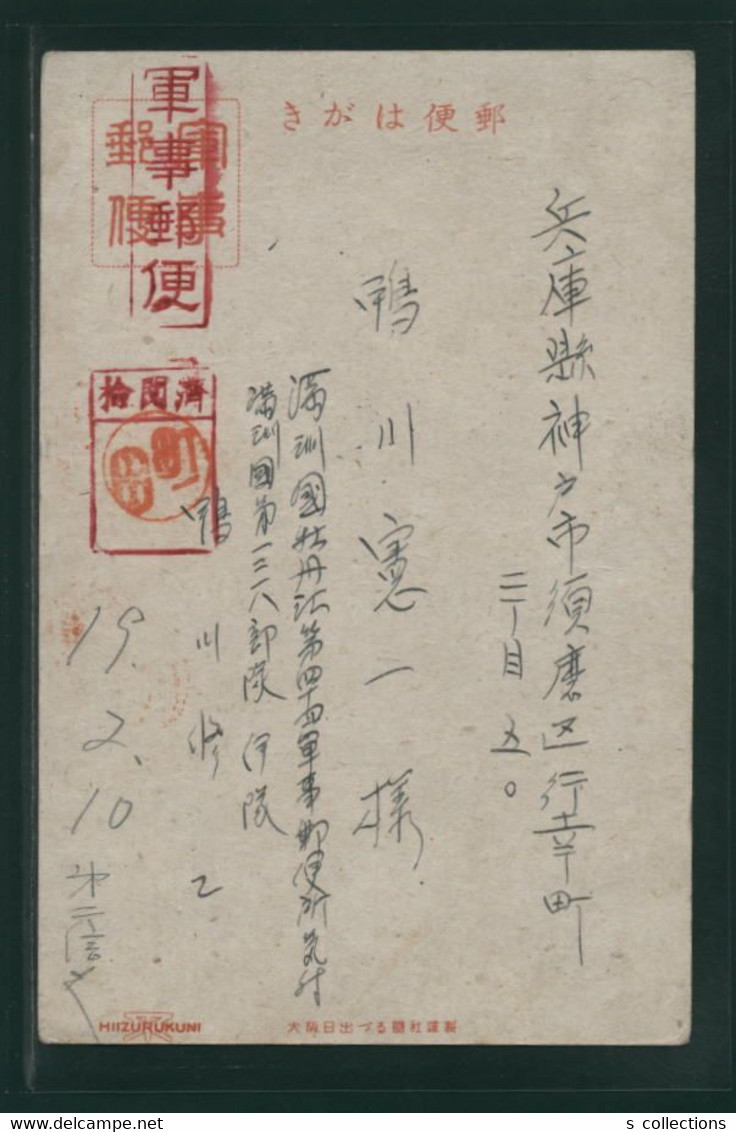 郵便はがき
軍事郵便
軍事
郵便
兵庫縣神戸市須磨区行幸町
三丁目五〇
鴨川憲一様
満洲國牡丹江第四十四軍事郵便所気付
満洲國第一三一八部隊伊隊
鴨川修乙
檢閲濟
19.2.10
大阪日出づる國社謹製
HIIZURUKUNI
s collections